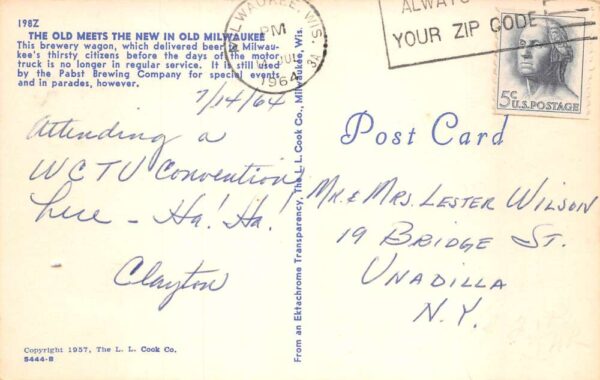 198Z
THE OLD MEETS THE NEW IN OLD MILWAUKEE
This brewery wagon, which delivered beer to Milwau-
kee's thirsty citizens before the days of the motor
truck is no longer in regular service. It is still used
by the Pabst Brewing Company for special events
and in parades, however.
MILWAUKEE, WIS.
PM
JUL
1964
3A
ALWAYS
YOUR ZIP CODE
5¢ U.S. POSTAGE
7/14/64
Attending a
WCTU Convention
here - Ha! Ha!
Clayton
From an Ektachrome Transparency, The L. L. Cook Co., Milwaukee, Wis.
Post Card
MR. & MRS. LESTER WILSON
19 BRIDGE ST.
UNADILLA
N.Y.
Copyright 1957, The L. L. Cook Co.
5444-B